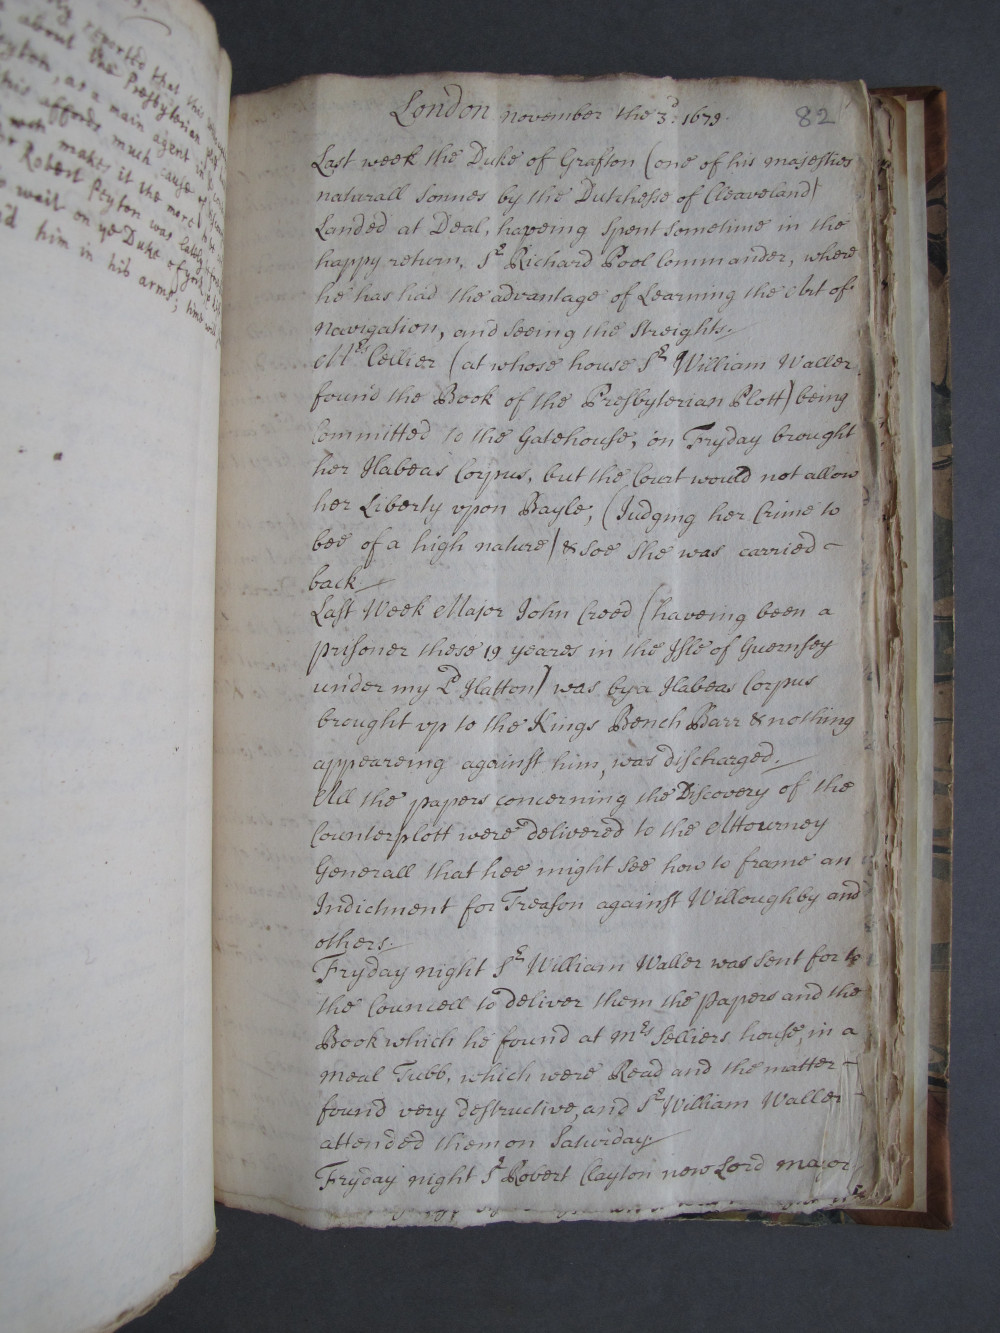 reported that this
about the Presbyterian
Peyton, as a main agent in
this affords much cause of
makes it the more
Robert Peyton was lately
wait on ye Duke of york, &
him in his arms; time will
London November the 3d: 1679.
82
Last week the Duke of Grafton (one of his majesties
naturall Sonnes by the Dutchesse of Cleaveland)
Landed at Deal, haveing Spent Sometime in the
happy return, Sr Richard Pool Commander, where
he has had the advantage of Learning the Art of
Navigation, and Seeing the Streights.
Mrs Cellier (at whose house Sr William Waller
found the Book of the Presbyterian Plott) being
Committed to the Gatehouse, on Fryday brought
her Habeas Corpus, but the Court would not allow
her Liberty vpon Bayle, (Judging her Crime to
bee of a high nature) & soe She was carried
back.
Last Week Major John Creed (haveing been a
prisoner these 19 yeares in the Isle of Guernsey
under my Ld Hatton) was by a Habeas Corpus
brought vp to the Kings Bench Barr & nothing
appeareing against him, was discharged.
All the papers concerning the Discovery of the
Counterplott were delivered to the Attourney
Generall that hee might See how to frame an
Indictment for Treason against Willoughby and
others.
Fryday night Sr William Waller was Sent for to
the Councell to deliver them the Papers and the
Book which he found at Mrs Selliers house, in a
Meal Tubb, which were Read and the matter
found very destructive, and Sr William Waller
attended them on Saturday.
Fryday night Sr Robert Clayton new Lord Major